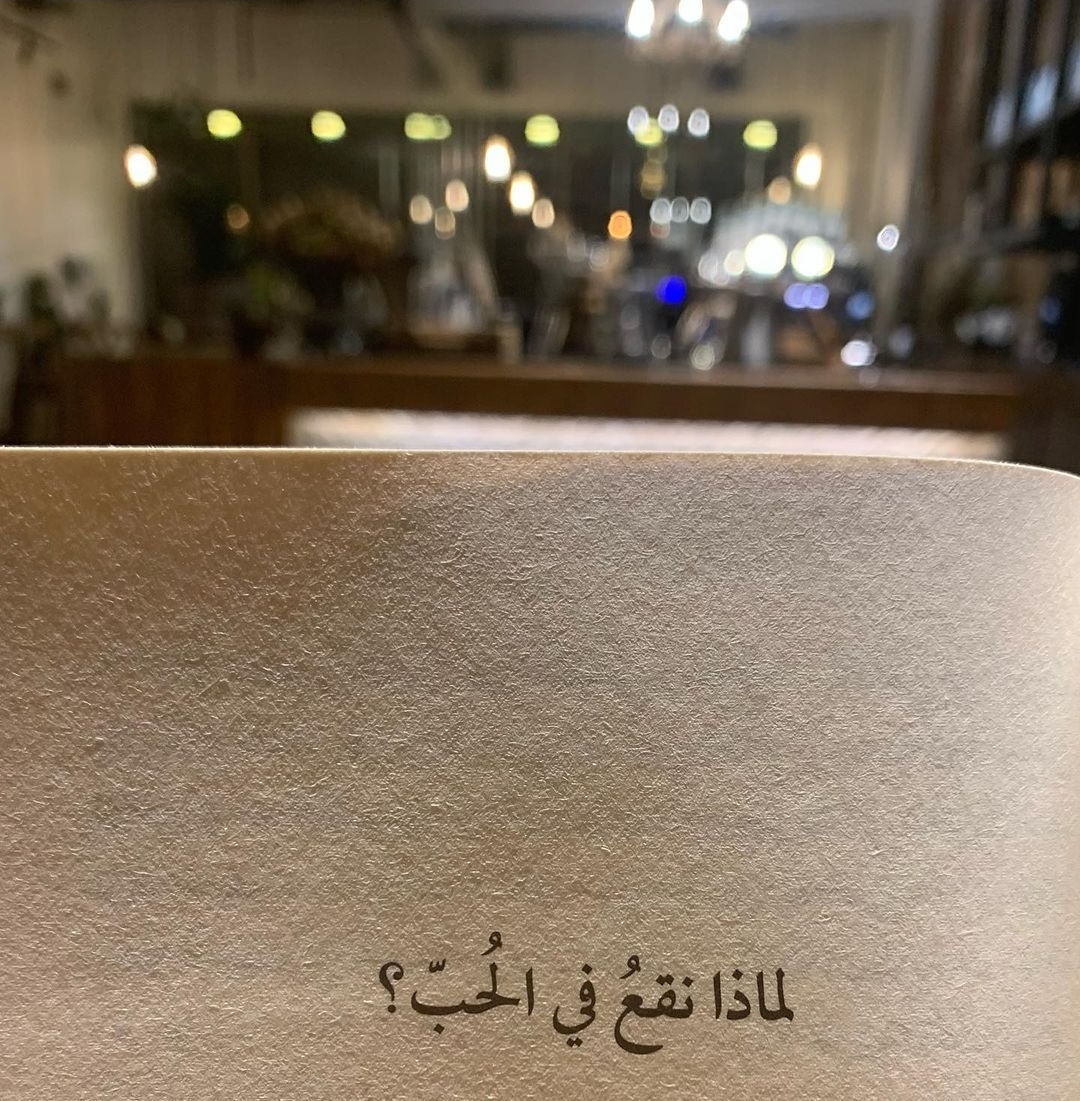 لماذا نقعُ في الُحبّ؟